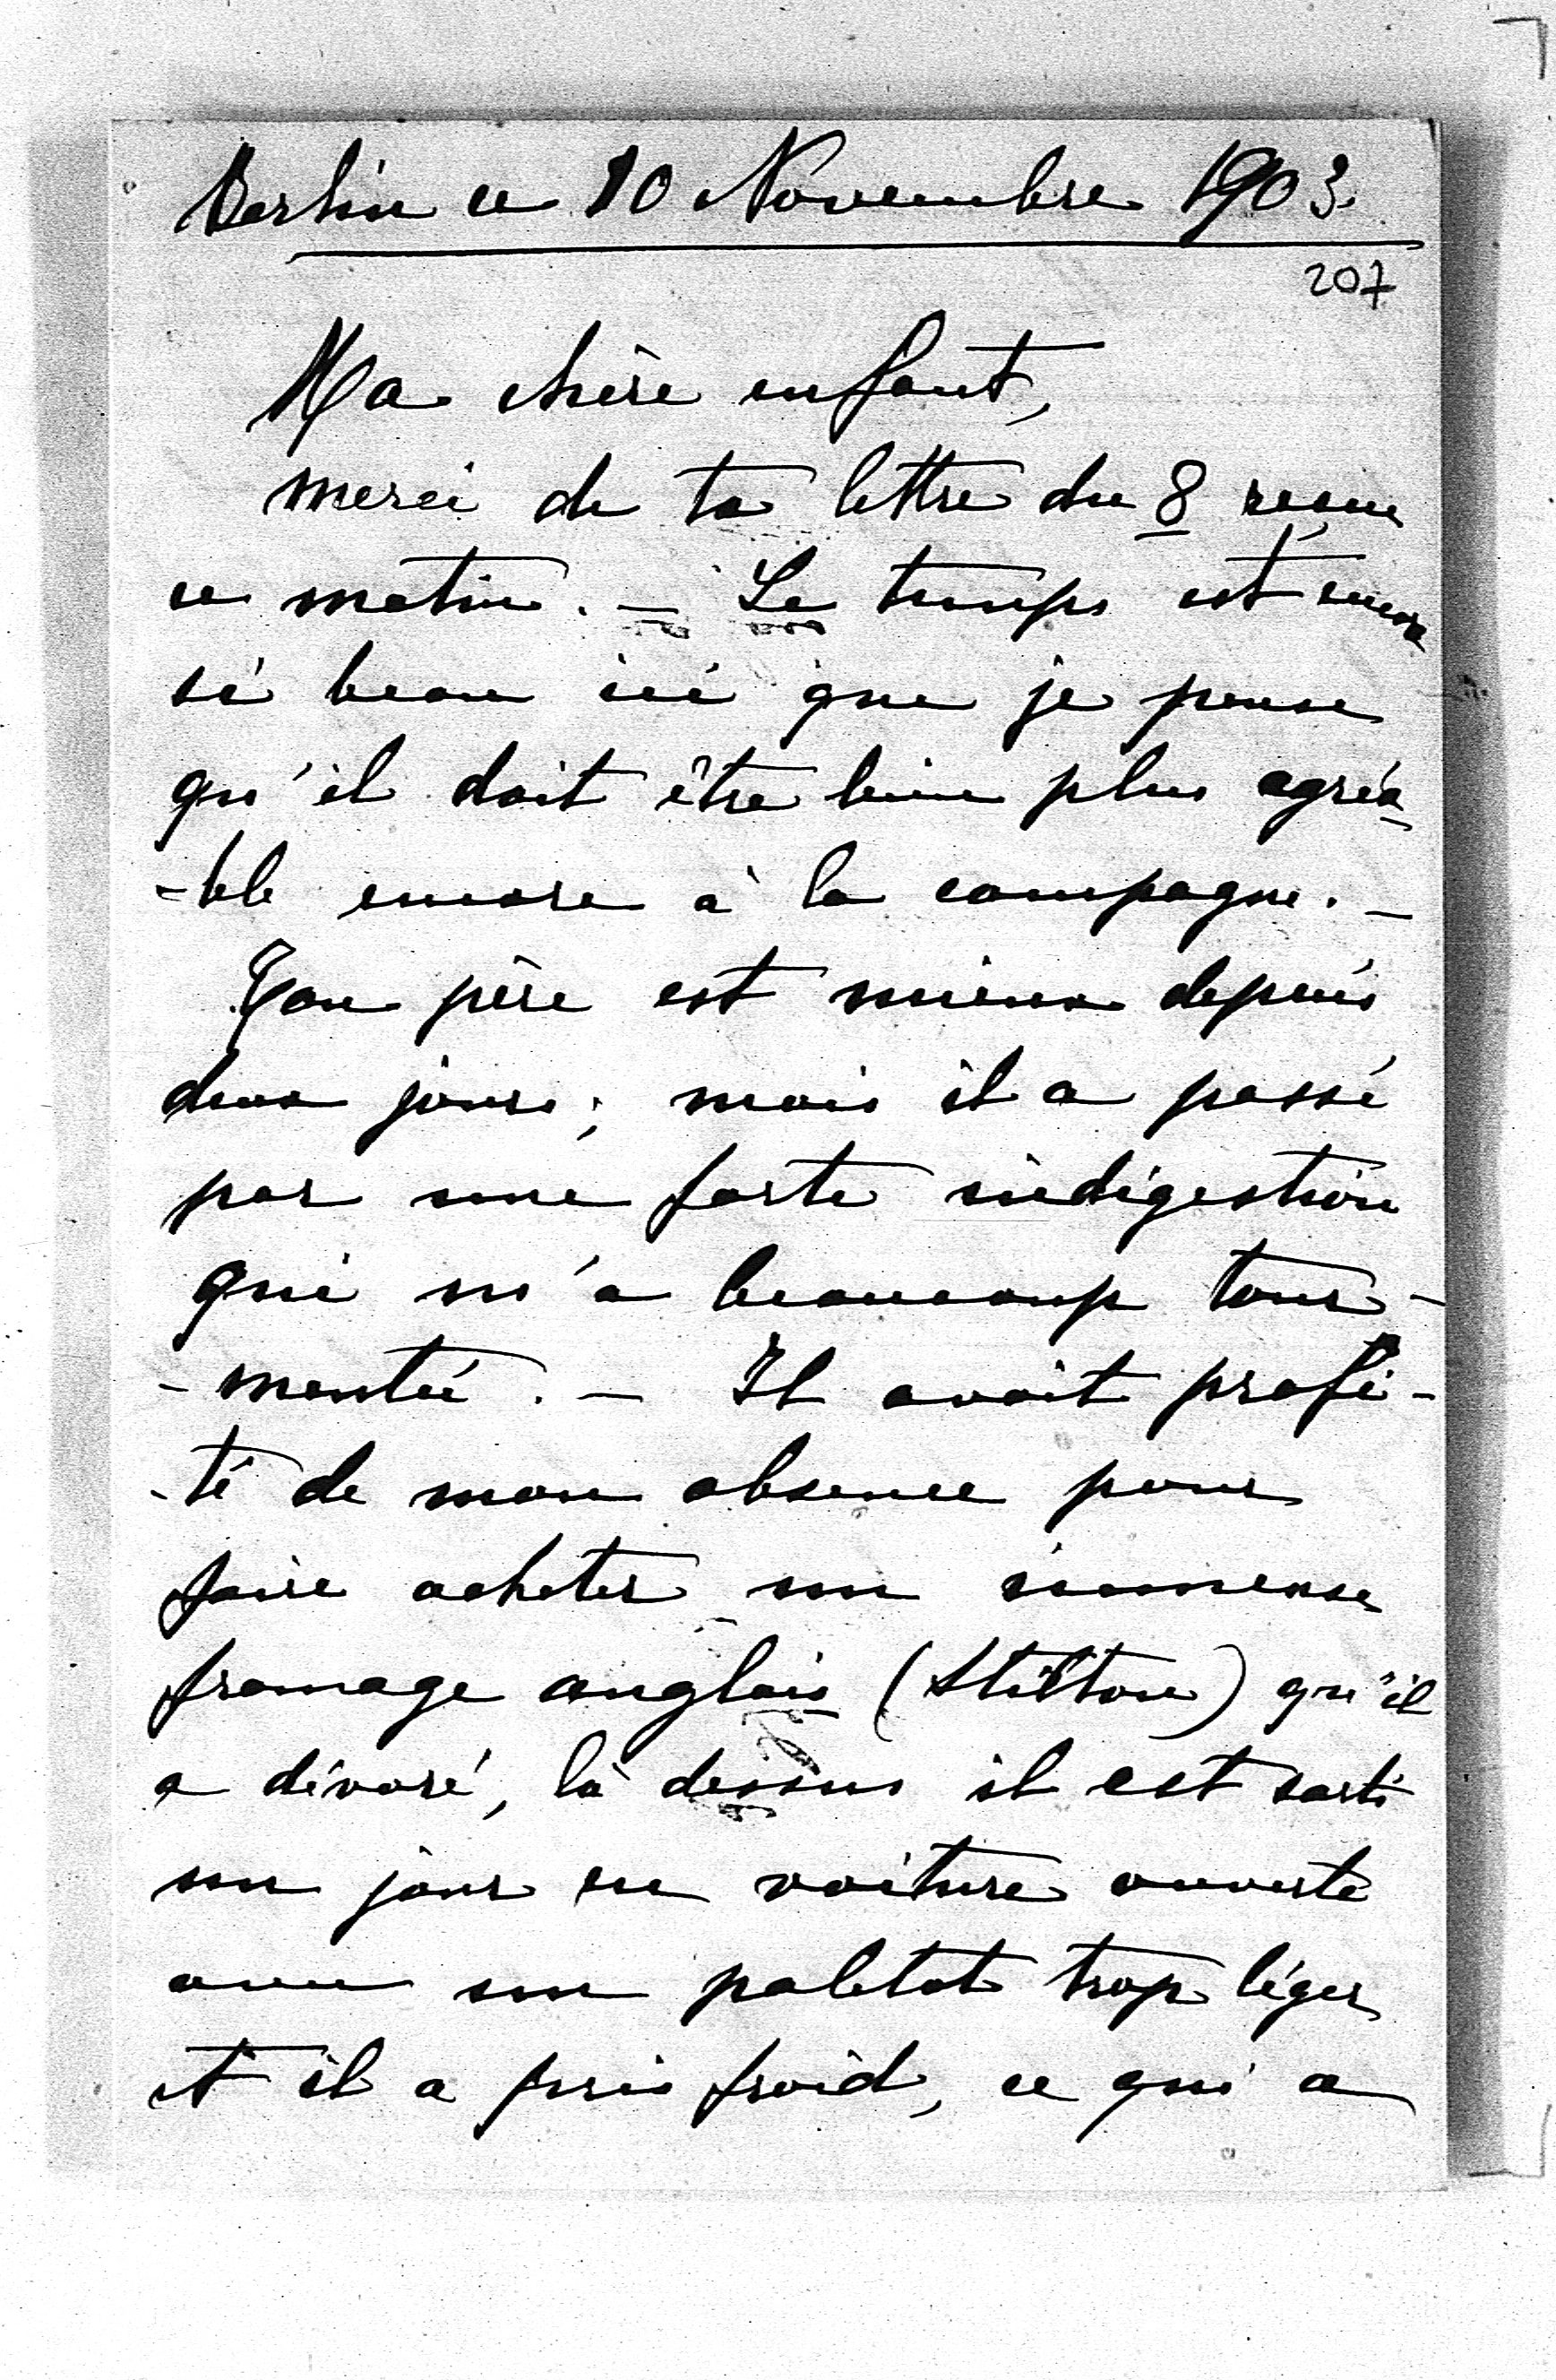 Berlin ce 10 Novembre 1903.
207
Ma chère enfant,
merci de ta lettre du 8 reçue
ce matin. — Le temps est encore
si beau ici que je pense
qu'il doit être bien plus agréa-
-ble encore à la campagne. —
Ton père est mieux depuis
deux jours; mais il a passé
par une forte indigestion
qui m'a beaucoup tour-
-mentée. — Il avait profi-
-té de mon absence pour
faire acheter un immense
fromage anglais (Stilton) qu'il
a dévoré, là dessus il est sorti
un jour en voiture ouverte
avec un paletot trop léger
et il a pris froid, ce qui a